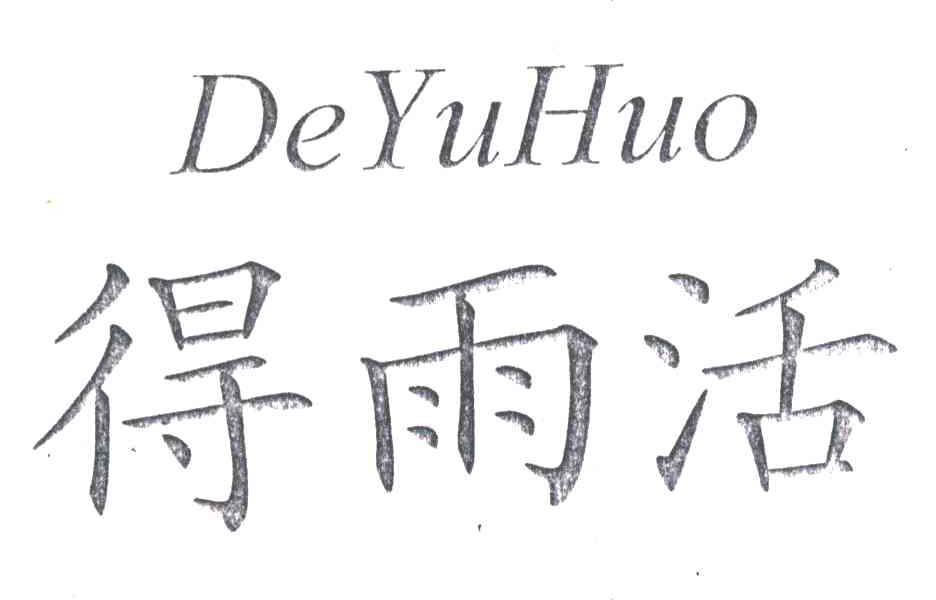 DeYuHuo
得雨活